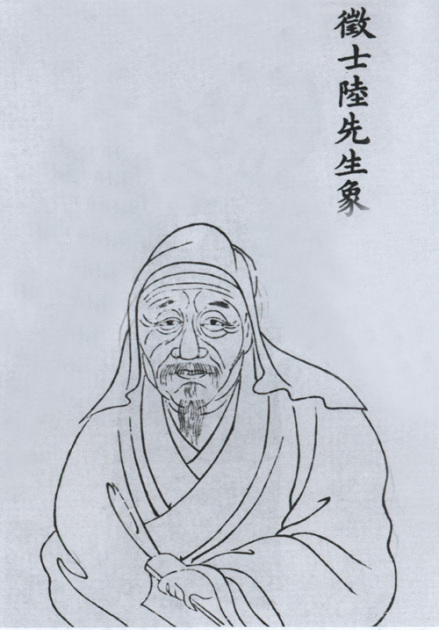 徵士陸先生象